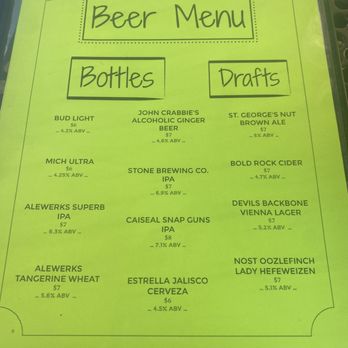 Beer Menu
Bottles
Drafts
BUD LIGHT
$6
~ 4.2% ABV ~
MICH ULTRA
$6
~ 4.25% ABV ~
ALEWERKS SUPERB
IPA
$7
~ 6.3% ABV ~
ALEWERKS
TANGERINE WHEAT
$7
~ 5.6% ABV ~
JOHN CRABBIE'S
ALCOHOLIC GINGER
BEER
$7
~ 4.6% ABV ~
STONE BREWING CO.
IPA
$7
~ 6.9% ABV ~
CAISEAL SNAP GUNS
IPA
$8
~ 7.1% ABV ~
ESTRELLA JALISCO
CERVEZA
$6
~ 4.5% ABV ~
ST. GEORGE'S NUT
BROWN ALE
$7
~ 5% ABV ~
BOLD ROCK CIDER
$7
~ 4.7% ABV ~
DEVILS BACKBONE
VIENNA LAGER
$7
~ 5.2% ABV ~
NOST OOZLEFINCH
LADY HEFEWEIZEN
$7
~ 5.1% ABV ~